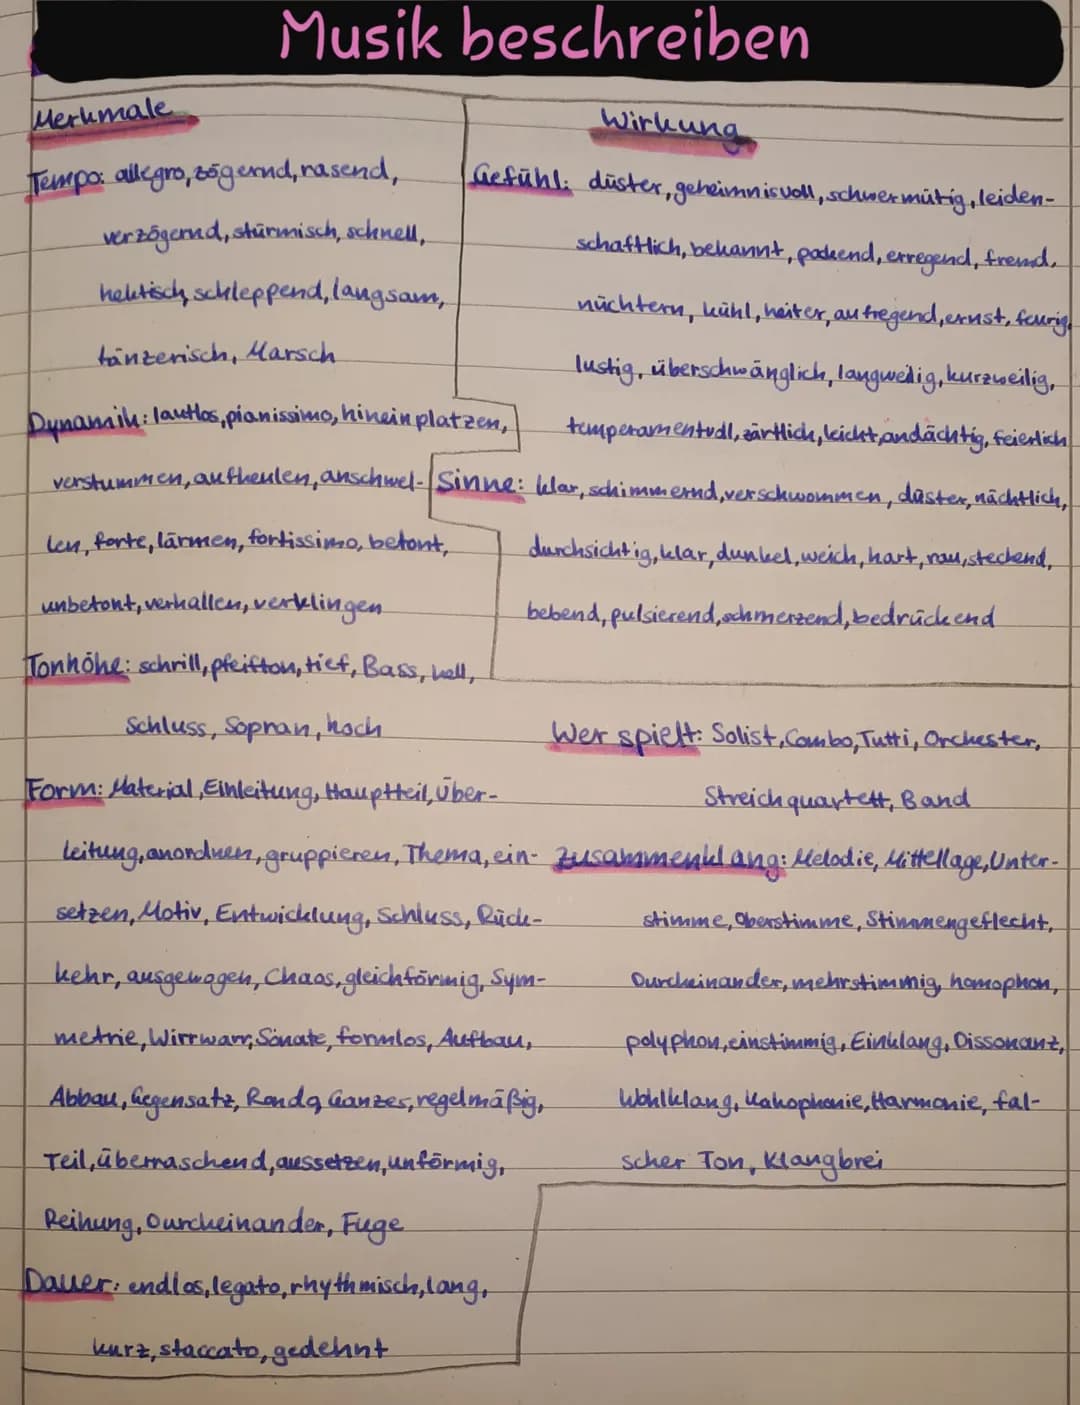 Musik beschreiben
Merkmale
Tempo: allegro, zögernd, rasend,
verzögernd, stürmisch, schnell,
hektisch, schleppend, langsam,
tänzerisch, Marsch
Dynamik: lautlos, pianissimo, hineinplatzen,
verstummen, aufheulen, anschwel-
len, forte, lärmen, fortissimo, betont,
unbetont, verhallen, verklingen
Tonhöhe: schrill, pfeifton, tief, Bass, hell,
Schluss, Sopran, hoch
Form: Material, Einleitung, Hauptteil, Über-
leitung, anordnen, gruppieren, Thema, ein-
setzen, Motiv, Entwicklung, Schluss, Rück-
kehr, ausgewogen, Chaos, gleichförmig, Sym-
metrie, Wirrwarr, Sonate, formlos, Aufbau,
Abbau, Gegensatz, Rondo, Ganzes, regelmäßig,
Teil, überraschend, aussetzen, unförmig,
Reihung, Durcheinander, Fuge
Dauer: endlos, legato, rhythmisch, lang,
kurz, staccato, gedehnt
Wirkung
Gefühl: düster, geheimnisvoll, schwermütig, leiden-
schaftlich, bekannt, packend, erregend, fremd,
nüchtern, kühl, heiter, aufregend, ernst, feurig,
lustig, überschwänglich, langweilig, kurzweilig,
temperamentvoll, zärtlich, leicht, andächtig, feierlich
Sinne: klar, schimmernd, verschwommen, düster, nächtlich,
durchsichtig, klar, dunkel, weich, hart, rau, stechend,
bebend, pulsierend, schmerzend, bedrückend
Wer spielt: Solist, Combo, Tutti, Orchester,
Streichquartett, Band
Zusammenklang: Melodie, Mittellage, Unter-
stimme, Oberstimme, Stimmengeflecht,
Durcheinander, mehrstimmig, homophon,
polyphon, einstimmig, Einklang, Dissonanz,
Wohlklang, Kakophonie, Harmonie, fal-
scher Ton, Klangbrei